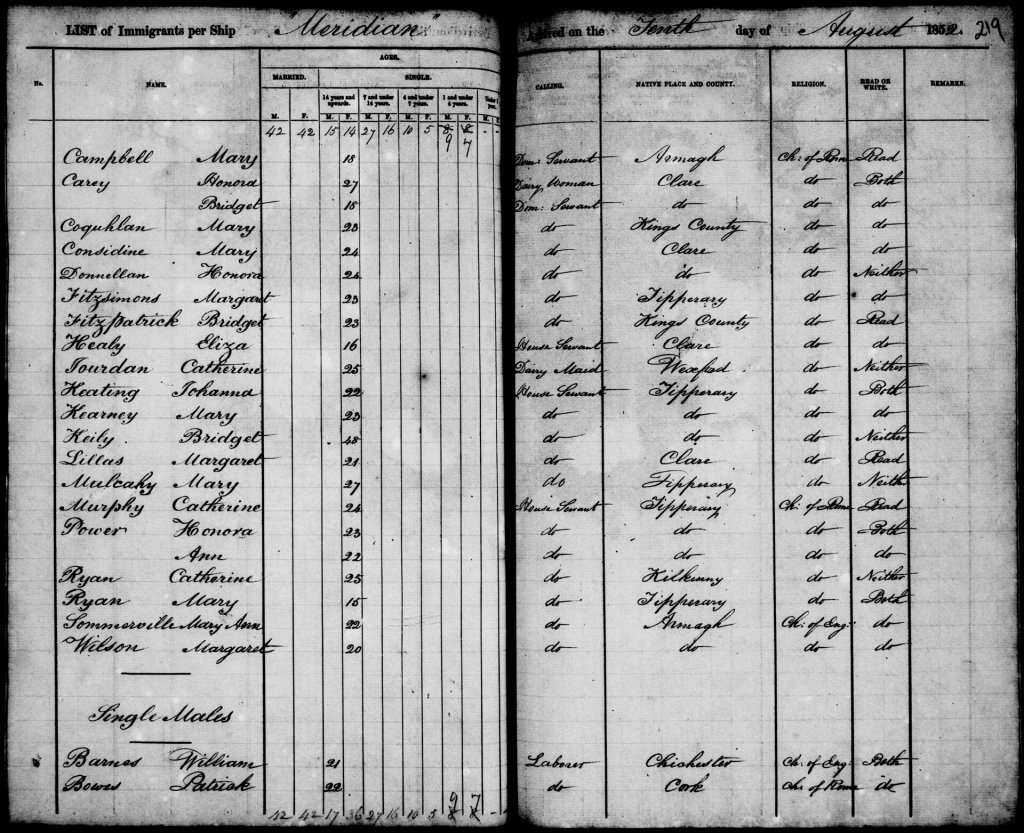 LIST of Immigrants per Ship "Meridian" Arrived on the Tenth day of August 1852. 219
AGES.
MARRIED. SINGLE.
No. NAME. 14 years and upwards. 7 and under 14 years. 4 and under 7 years. 1 and under 4 years. Under 1 year. CALLING. NATIVE PLACE AND COUNTY. RELIGION. READ OR WRITE. REMARKS.
M. F. M. F. M. F. M. F. M. F. M. F.
42 42 15 14 27 16 10 5 8 8 - -
9 7
Campbell Mary 18 Dom: Servant Armagh Ch: of Rome Read
Carey Honora 27 Dairy Woman Clare do Both
Bridget 18 Dom: Servant do do do
Coguhlan Mary 23 do Kings County do do
Considine Mary 24 do Clare do do
Donnellan Honora 24 do do do Neither
Fitzsimons Margaret 23 do Tipperary do do
Fitzpatrick Bridget 23 do Kings County do Read
Healy Eliza 16 House Servant Clare do do
Jourdan Catherine 25 Dairy Maid Wexford do Neither
Keating Johanna 22 House Servant Tipperary do Both
Kearney Mary 23 do do do do
Keily Bridget 18 do do do Neither
Lillas Margaret 21 do Clare do Read
Mulcahy Mary 27 do Tipperary do Neith
Murphy Catherine 24 House Servant Tipperary Ch: of Rome Read
Power Honora 23 do do do Both
Ann 22 do do do do
Ryan Catherine 25 do Kilkenny do Neither
Ryan Mary 15 do Tipperary do Both
Sommerville Mary Ann 22 do Armagh Ch: of Eng: do
Wilson Margaret 20 do do do do
Single Males
Barnes William 21 Laborer Chichester Ch: of Eng: Both
Bowes Patrick 22 do Cork Ch: of Rome do
9 7
42 42 17 36 27 16 10 5 8 8 - -